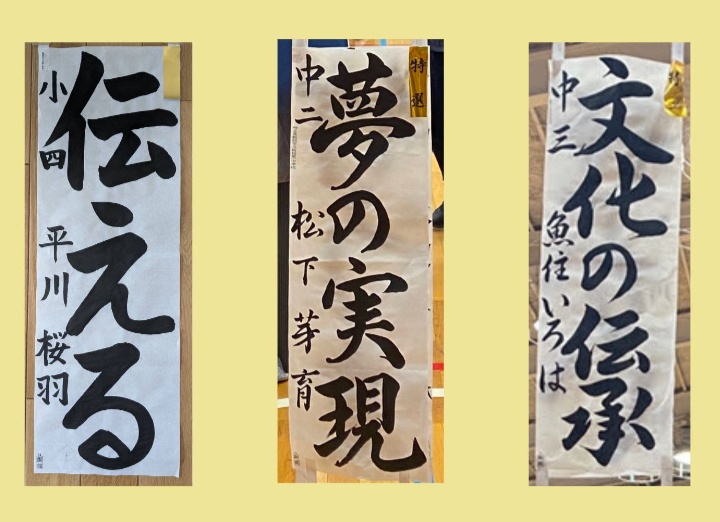 伝える
小四 平川 桜羽
特選
夢の実現
中二 松下 芽育
文化の伝承
中三 魚住いろは